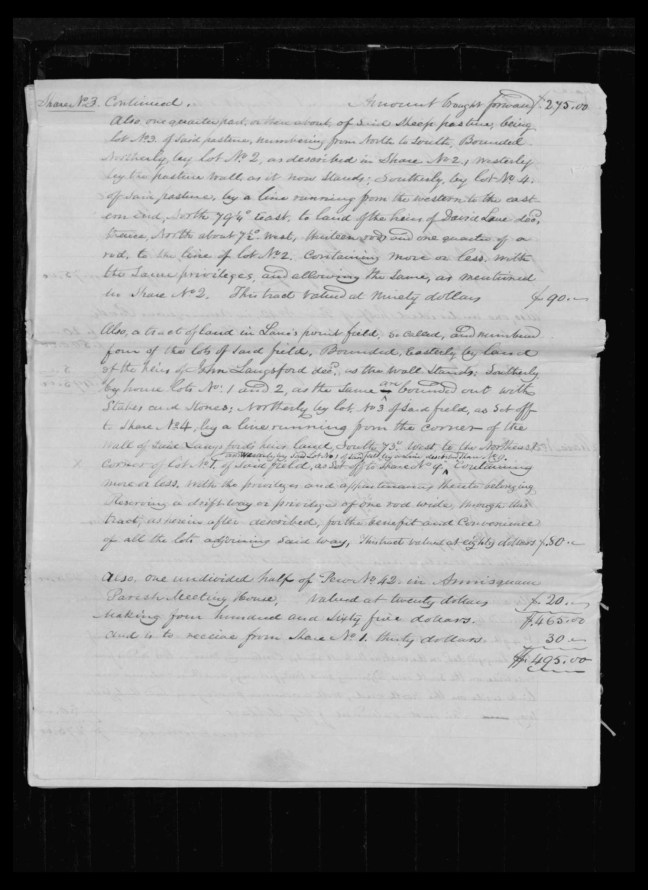 Share No 3. Continued. Amount brought forward $. 275.00
Also one quarter part, or then about, of said Sheep pasture, being
lot No 3. of said pasture, numbering from North to South, Bounded
Northerly, by lot No 2, as described in Share No 2; Westerly
by the pasture wall, as it now Stands; Southerly, by lot No 4.
of said pasture, by a line running from the western to the east-
ern end, North 79¼° East, to land of the heirs of David Lane decd,
thence, North about 7½° West, thirteen rods and one quarter of a
rod, to the line of lot No 2. Containing more or less, with
the Same privileges, and allowing the Same, as mentioned
in Share No 2. This tract Valued at Ninety dollars $ 90.—
Also, a tract of land in Lane's point field, so called, and numbered
four of the lots of said field, Bounded, Easterly by land
of the heirs of John Langsford decd, as the wall Stands; Southerly
by house lots No. 1 and 2, as the Same are bounded out with
Stakes and Stones; Northerly by lot No 3 of said field, as Set off
to Share No 4, by a line running from the corner of the
wall of said Langsfords heirs land, South 73° West to the Northeast
corner of lot No 1, of said field, as Set off to Share No 4, Containing
more or less, with the privileges and appurtenances thereto belonging
Reserving a drift way or privilege of one rod wide, through this
tract, as herein after described, for the benefit and Convenience
of all the lots adjoining said way, This tract valued at eighty dollars $. 80.—
Also, one undivided half of Pew No 42. in Annisquam
Parish Meeting House, Valued at twenty dollars $. 20.—
Making four hundred and Sixty five dollars. $. 465.00
And is to receive from Share No 1. thirty dollars. 30.—
$. 495.00